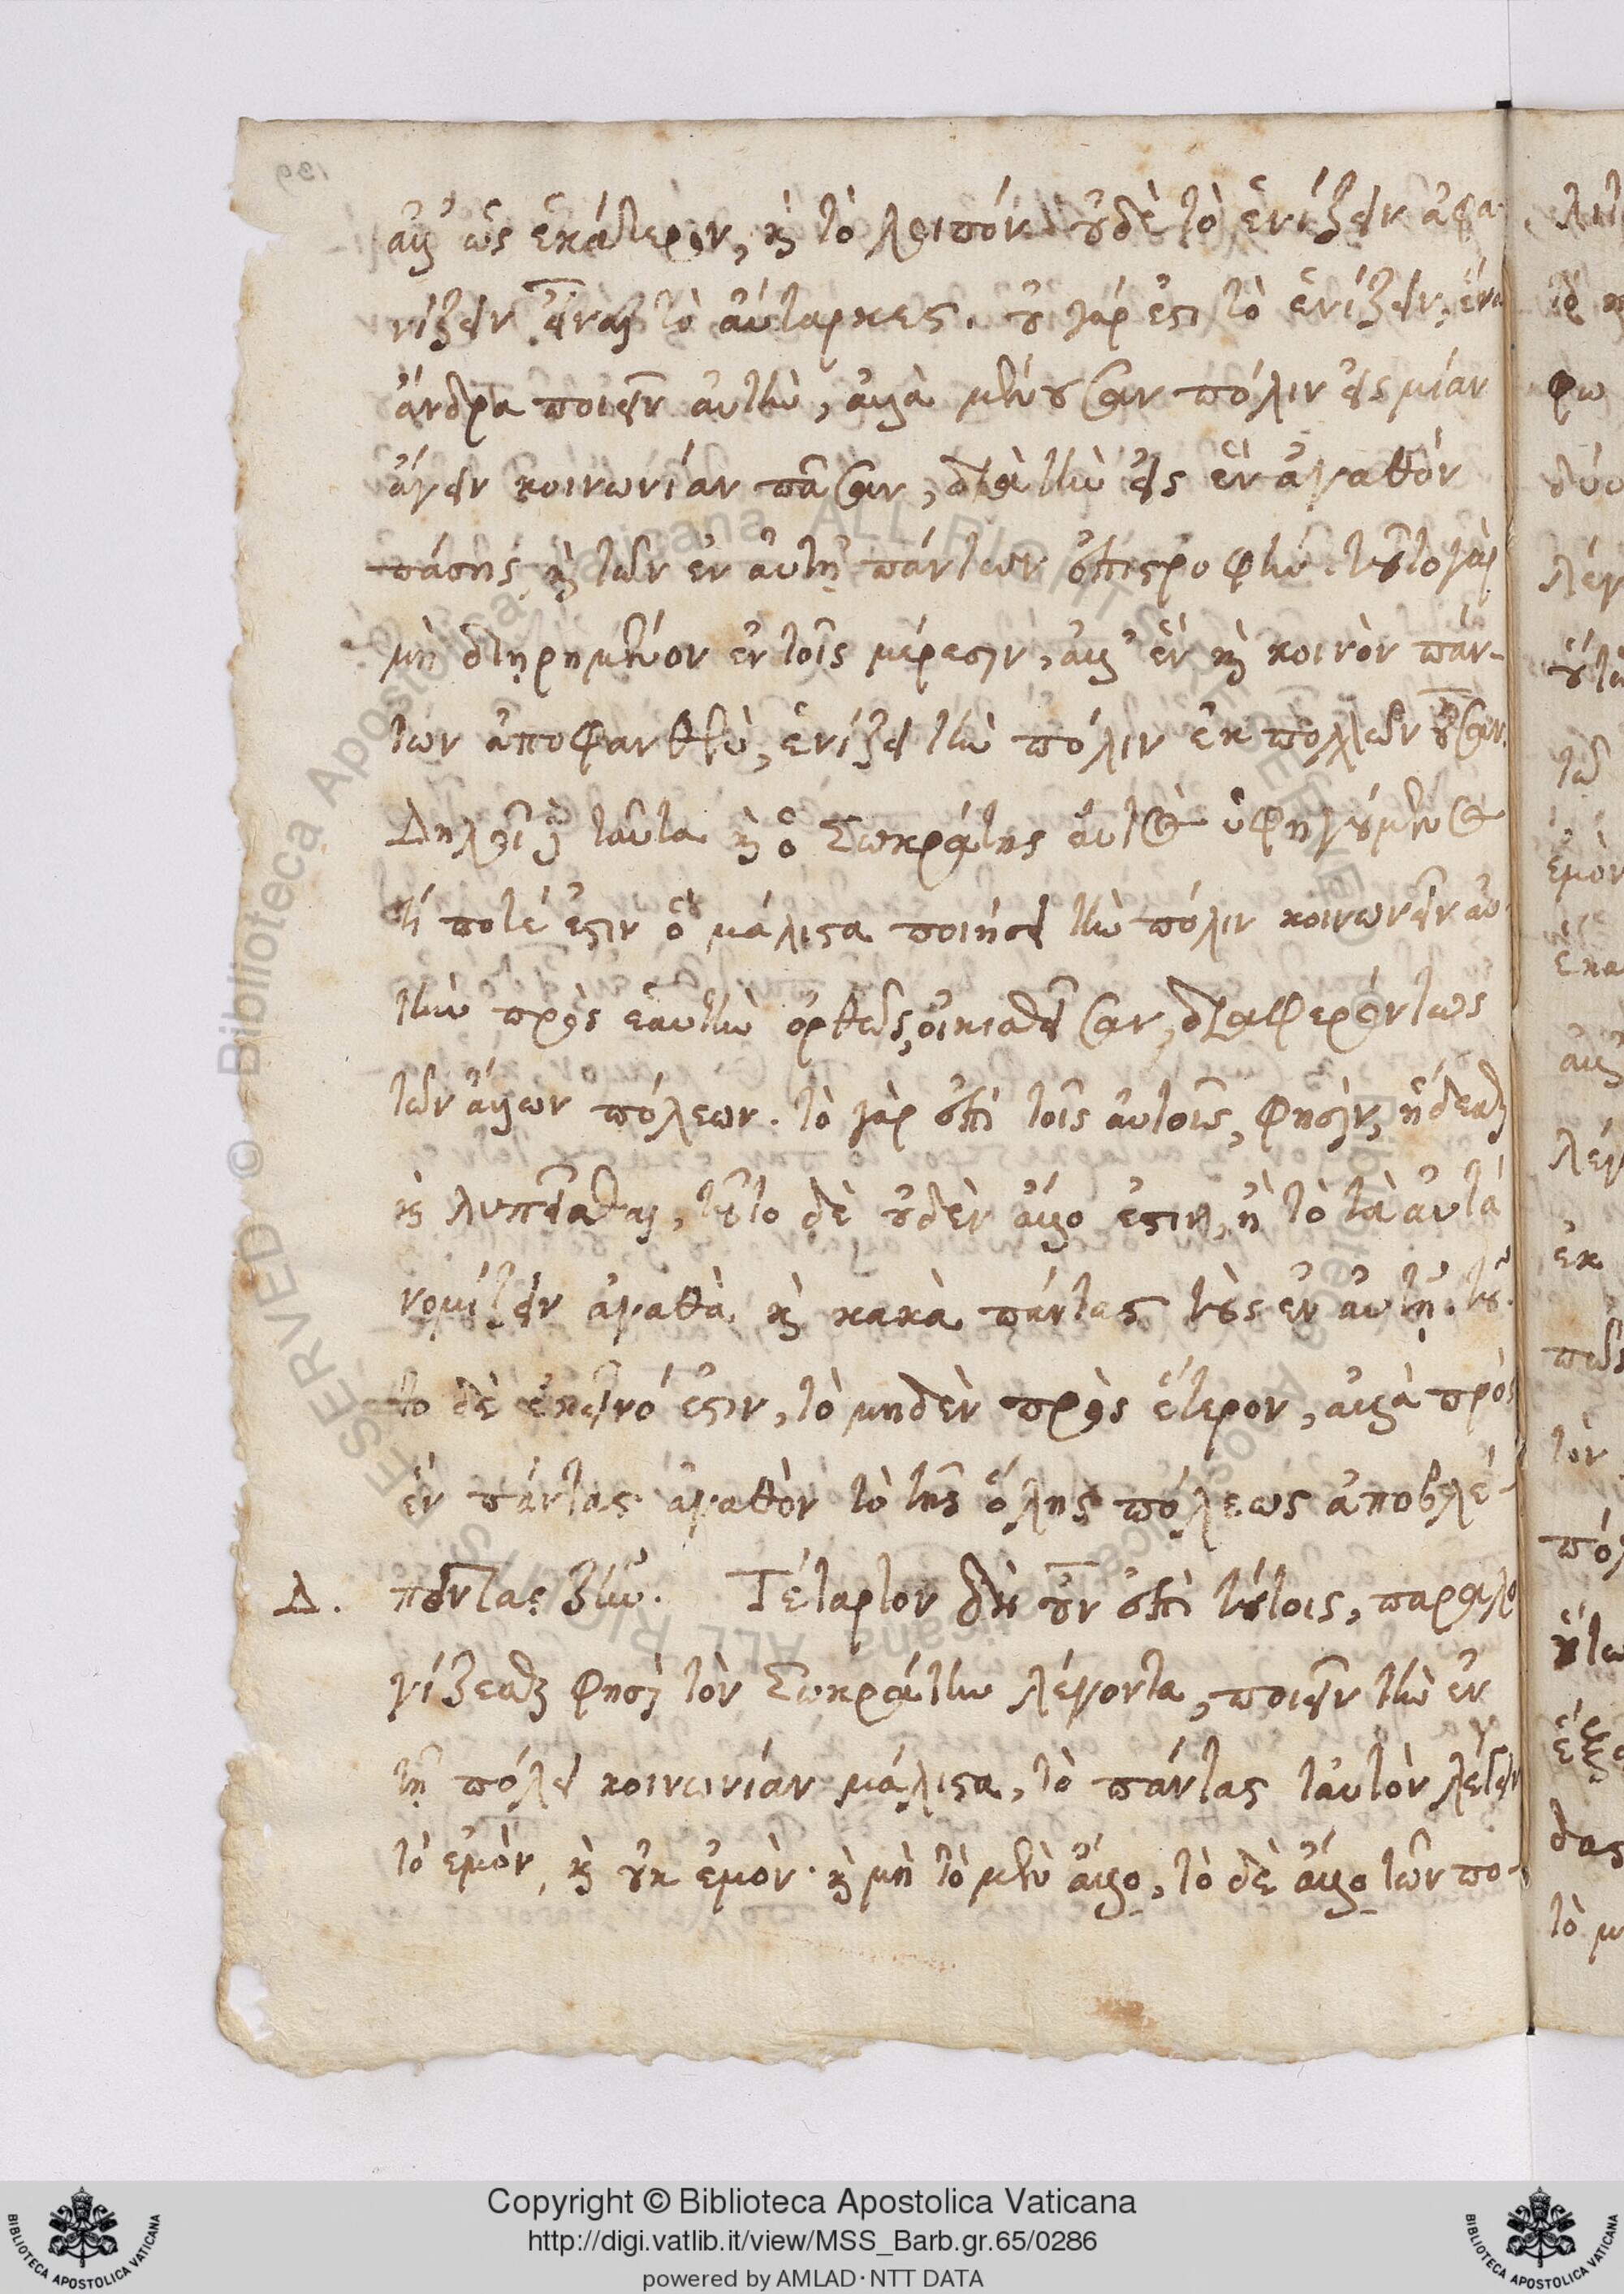 ἀλλ' ὡς ἑκάτερον, καὶ τὸ λοιπόν οὐδὲ τὸ ἑνίζειν ἀφα-
νίζειν εἶναι τὸ αὔταρκες. οὐ γάρ ἐστι τὸ ἑνίζειν, ἕνα
ἄνδρα ποιεῖν αὐτὴν, ἀλλὰ μένουσαν πόλιν εἰς μίαν
ἄγειν κοινωνίαν πᾶσαν, διὰ τὴν εἰς ἓν ἀγαθόν
πάσης καὶ τῶν ἐν αὐτῇ πάντων ἐπιστροφήν. τοῦτο γὰρ
μὴ διῃρημένον ἐν τοῖς μέρεσιν, ἀλλ' ἓν καὶ κοινὸν πάν-
των ἀποφανθὲν, ἑνίζει τὴν πόλιν ἐκ πολλῶν οὖσαν.
Δηλοῖ δὲ ταῦτα καὶ ὁ Σωκράτης αὐτὸς ὑφηγούμενος
τί ποτέ ἐστιν ὃ μάλιστα ποιήσει τὴν πόλιν κοινωνεῖν αὐ-
τὴν πρὸς ἑαυτὴν ὀρθῶς οἰκισθεῖσαν, διαφερόντως
τῶν ἄλλων πόλεων. τὸ γὰρ ἐπὶ τοῖς αὐτοῖς, φησὶν, ἥδεσθαι
καὶ λυπεῖσθαι, τοῦτο δὲ οὐδὲν ἄλλο ἐστιν, ἢ τὸ τὰ αὐτὰ
νομίζειν ἀγαθὰ καὶ κακὰ πάντας τοὺς ἐν αὐτῇ. τοῦ-
το δὲ ἐκεῖνό ἐστιν, τὸ μηδὲν πρὸς ἕτερον, ἀλλὰ πρὸς
ἓν πάντας ἀγαθὸν τὸ τῆς ὅλης πόλεως ἀποβλέ-
Δ. ποντας ζῆν. Τέταρτον δὴ οὖν ἐπὶ τούτοις, παραλο
γίζεσθαι φησὶ τὸν Σωκράτην λέγοντα, ποιεῖν τὴν ἐν
τῇ πόλει κοινωνίαν μάλιστα, τὸ πάντας ταυτὸν λέγειν
τὸ ἐμὸν, καὶ οὐκ ἐμὸν. καὶ μὴ τὸ μὲν ἄλλο, τὸ δὲ ἄλλο τῶν πο-
Copyright © Biblioteca Apostolica Vaticana
http://digi.vatlib.it/view/MSS_Barb.gr.65/0286
powered by AMLAD·NTT DATA